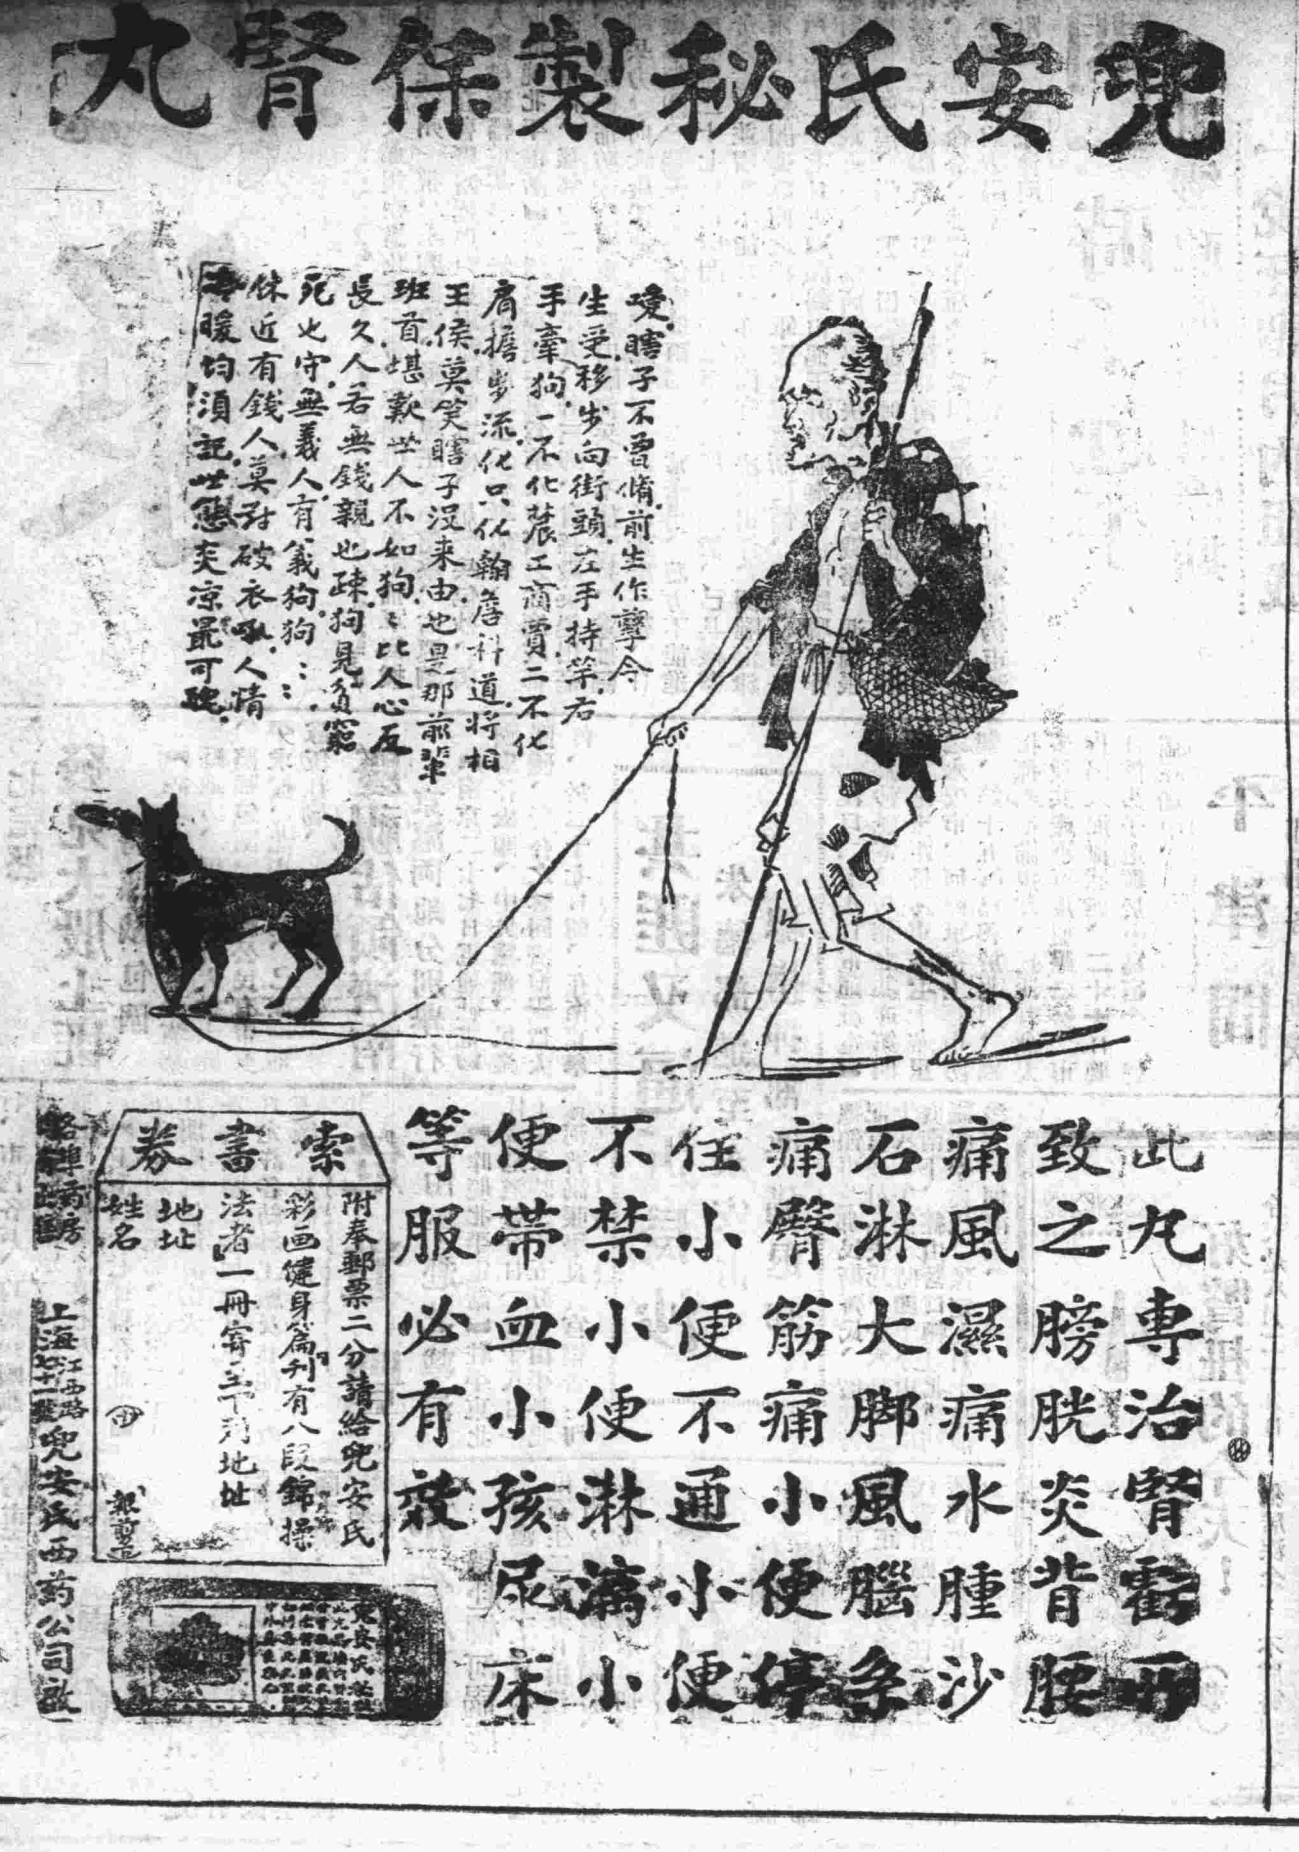 兜安氏秘製保腎丸
嗳瞎子不曾脩前生作孽今
生受移步向街頭左手持竿右
手牽狗一不化農工商賈二不化
肩擔步流化只化翰詹科道將相
王侯莫笑瞎子没来由也是那前輩
班首堪歎世人不如狗〻比人心反
長久人若無錢親也疎狗見貧窮
死也守無義人有義狗狗〻〻
休近有錢人莫對破衣吼人情
冷暖均須記世態炎凉最可醜
此丸専治腎虧所
致之膀胱炎背腰
痛風濕痛水腫沙
石淋大脚瘋腦
痛臂筋痛小便停
住小便不通小便
不禁小便淋漓小
便帶血小孩尿床
等服必有效
索書券
附奉郵票二分請給兜安氏
彩画健身篇刊有八段錦操
法者一冊寄至下列地址
地址
姓名
報剪
各埠药房
上海江西路
兜安氏西药公司啟